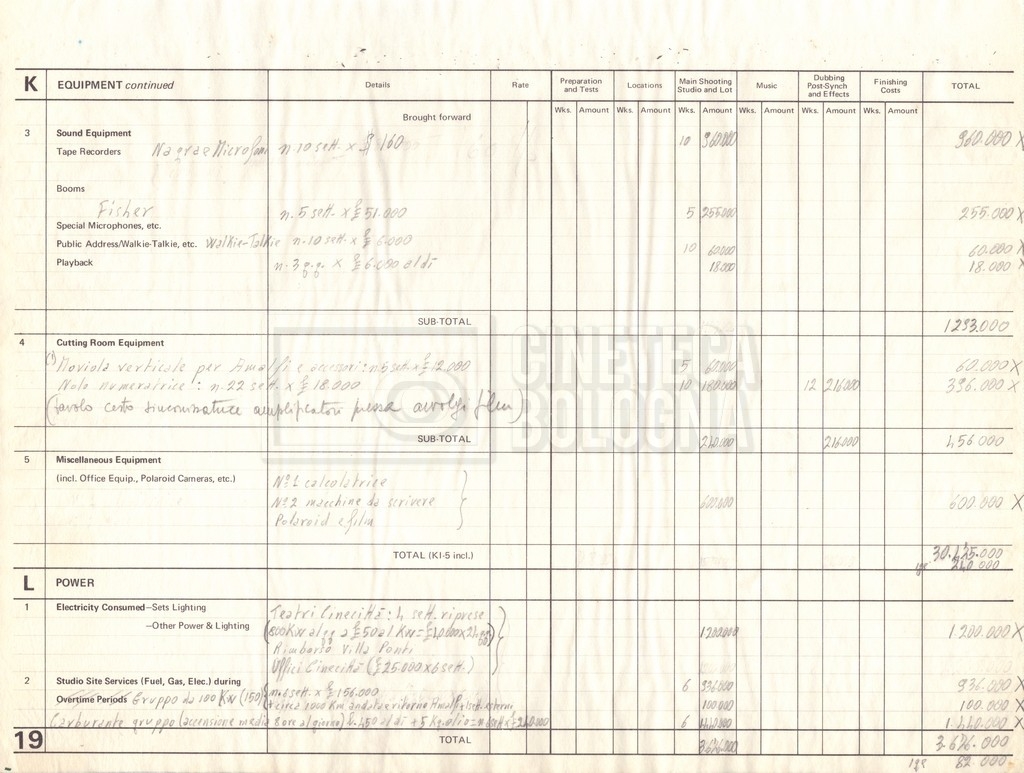 K EQUIPMENT continued Details Rate Preparation and Tests Locations Main Shooting Studio and Lot Music Dubbing Post-Synch and Effects Finishing Costs TOTAL
Brought forward Wks. Amount Wks. Amount Wks. Amount Wks. Amount Wks. Amount Wks. Amount
3 Sound Equipment
Tape Recorders n 10 sett. x 10 960.000 960.000 X
Booms
Fisher n. 5 sett. x £ 51.000 5 255.000 255.000 X
Special Microphones, etc.
Public Address/Walkie-Talkie, etc. Walkie-Talkie n. 10 sett. x £ 6.000 10 60.000 60.000 X
Playback n. 3 g.g. x £ 6.000 al dì 18.000 18.000 X
SUB-TOTAL 1293.000
4 Cutting Room Equipment
Moviola verticale per Amalfi e accessori: n. 5 sett. x £ 12.000 5 60.000 60.000 X
Nolo numeratrice: n. 22 sett. x £ 18.000 10 180.000 12 216.000 396.000 X
(tavolo cesto sincronizzatrice amplificatori pressa avvolgi film)
CINETECA BOLOGNA
SUB-TOTAL 240.000 216.000 456.000
5 Miscellaneous Equipment
(incl. Office Equip., Polaroid Cameras, etc.) N° 1 calcolatrice
N° 2 macchine da scrivere 600.000 600.000 X
Polaroid e film
TOTAL (K1-5 incl.) 30.125.000
240.000
L POWER
1 Electricity Consumed—Sets Lighting Teatri Cinecittà: 4 sett. riprese
—Other Power & Lighting 1200.000 1.200.000 X
Rimborso Villa Ponti
Uffici Cinecittà (£ 25.000 x 6 sett.)
2 Studio Site Services (Fuel, Gas, Elec.) during n. 6 sett. x £ 156.000 6 936.000 936.000 X
Overtime Periods Gruppo da 100 KW (150) circa 1000 Km andata e ritorno Amalfi 100.000 100.000 X
Carburante gruppo (accensione media 8 ore al giorno) 6 1440.000 1.440.000 X
19 TOTAL 3.676.000 3.676.000
82.000